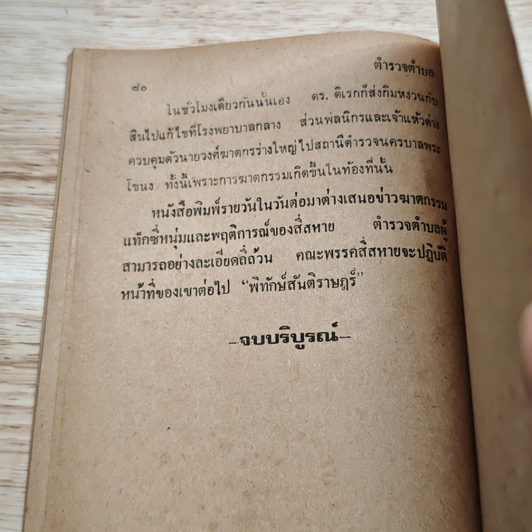 ๘๑
ตำรวจตำบล
ในชั่วโมงเดียวกันนั้นเอง ดร. ดิเรกก็ส่งกิมหงวนกับ
สินไปแก้ไขที่โรงพยาบาลกลาง ส่วนพลนิกรและเจ้าแห้วต่าง
ควบคุมตัวนายวงศ์ฆาตกรร่างใหญ่ไปสถานีตำรวจนครบาลพระ
โขนง ทั้งนี้เพราะการฆาตกรรมเกิดขึ้นในท้องที่นั้น
หนังสือพิมพ์รายวันในวันต่อมาต่างเสนอข่าวฆาตกรรม
แท๊กซี่หนุ่มและพฤติการณ์ของสี่สหาย ตำรวจตำบลผู้
สามารถอย่างละเอียดถี่ถ้วน คณะพรรคสี่สหายจะปฏิบัติ
หน้าที่ของเขาต่อไป “พิทักษ์สันติราษฎร์”
–จบบริบูรณ์–